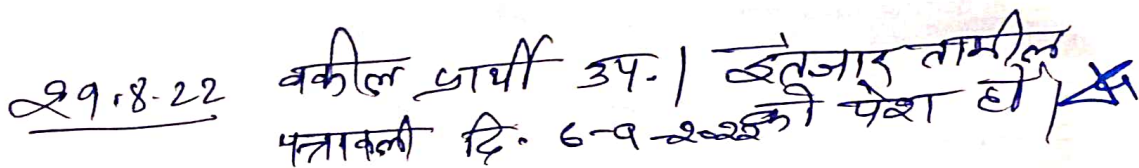 29.8.22 वकील प्रार्थी उप.। इंतजार तामील
पत्रावली दि. 6-9-2022 को पेश हो।